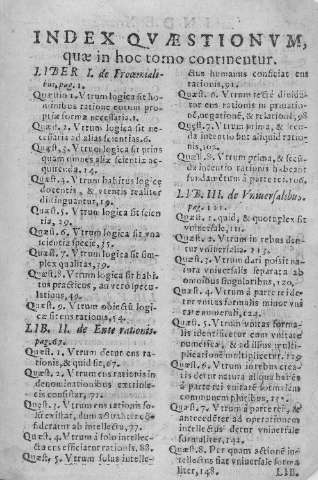 INDEX QVÆSTIONVM,
quæ in hoc tomo continentur.
LIBER I. de Proœmiali-
bus, pag. 1.
Quæstio 1. Vtrum logica sit ho-
minibus ratione vtenti-
propria forma necessaria. 1.
Quæst. 2. Vtrum logica sit ne-
cessaria ad alias scientias. 6.
Quæst. 3. Vtrum logica sit prius
quam omnes aliæ scientiæ ac-
quirenda, 14.
Quæst. 4. Vtrum habitus logicę
docentis, & vtentis realiter
distinguantur, 19.
Quæst. 5. Vtrum logica sit scien
tia, 29.
Quæst. 6. Vtrum logica sit vna
scientia specie, 35.
Quæst. 7. Vtrum logica sit sim-
plex qualitas, 39.
Quæst. 8. Vtrum logica sit habi-
tus practicus, an verò specu-
latiuus, 49.
Quæst. 9. Vtrum obiectũ logi-
cæ sit ens rationis, 54.
LIB. II. de Ente rationis.
pag. 67.
Quæst. 1. Vtrum detur ens ra-
tionis, & quid sit, 67.
Quæst. 2. Vtrum ens rationis in
denominationibus extrinse-
cis consistat, 71.
Quæst. 3. Vtrum ens rationis so-
li consistat, dum actu
sideratur ab intellectu, 77.
Quæst. 4. Vtrum à solo intelle-
ctu ens efficiatur rationis, 88.
Quæst. 5. Vtrum solus intelle-
ctus humanus conficiat ens
rationis, 91.
Quæst. 6. Vtrum rectè diuida-
tur ens rationis in priuatio-
nẽ, negationẽ, & relationẽ, 98
Quæst. 7. Vtrum prima, & secu-
nda intentio sint aliquid ratio-
nis, 102.
Quæst. 8. Vtrum prima, & secũ-
da intentio rationis habeat
fundamentum à parte rei, 106.
LIB. III. de Vniuersalibus.
pag. 111.
Quæst. 1. quid, & quotuplex sit
vniuersale, 111.
Quæst. 2. Vtrum in rebus den-
tur vniuersalia. 113.
Quæst. 3. Vtrum dari possit na-
tura vniuersalis separata ab
omnibus singularibus, 120.
Quæst. 4. Vtrum à parte rei de-
tur vnitas formalis minor vni
tate numerali,
Quæst. 5. Vtrum vnitas forma-
lis identificetur cum vnitate
numerica, & ad illius multi-
plicationē multiplicetur. 129
Quæst. 6. Vtrum extra intellectũ
detur natura aliqua habẽs
à parte rei vnitatẽ formalem
communem pluribus,
Quæst. 7. Vtrum à parte rei, &
antecedenter ad operationem
intellectus detur vniuersale
formaliter, 141.
Quæst. 8. Per quam actionẽ in-
tellectus fiat vniuersale forma
liter, 148.
LIB.